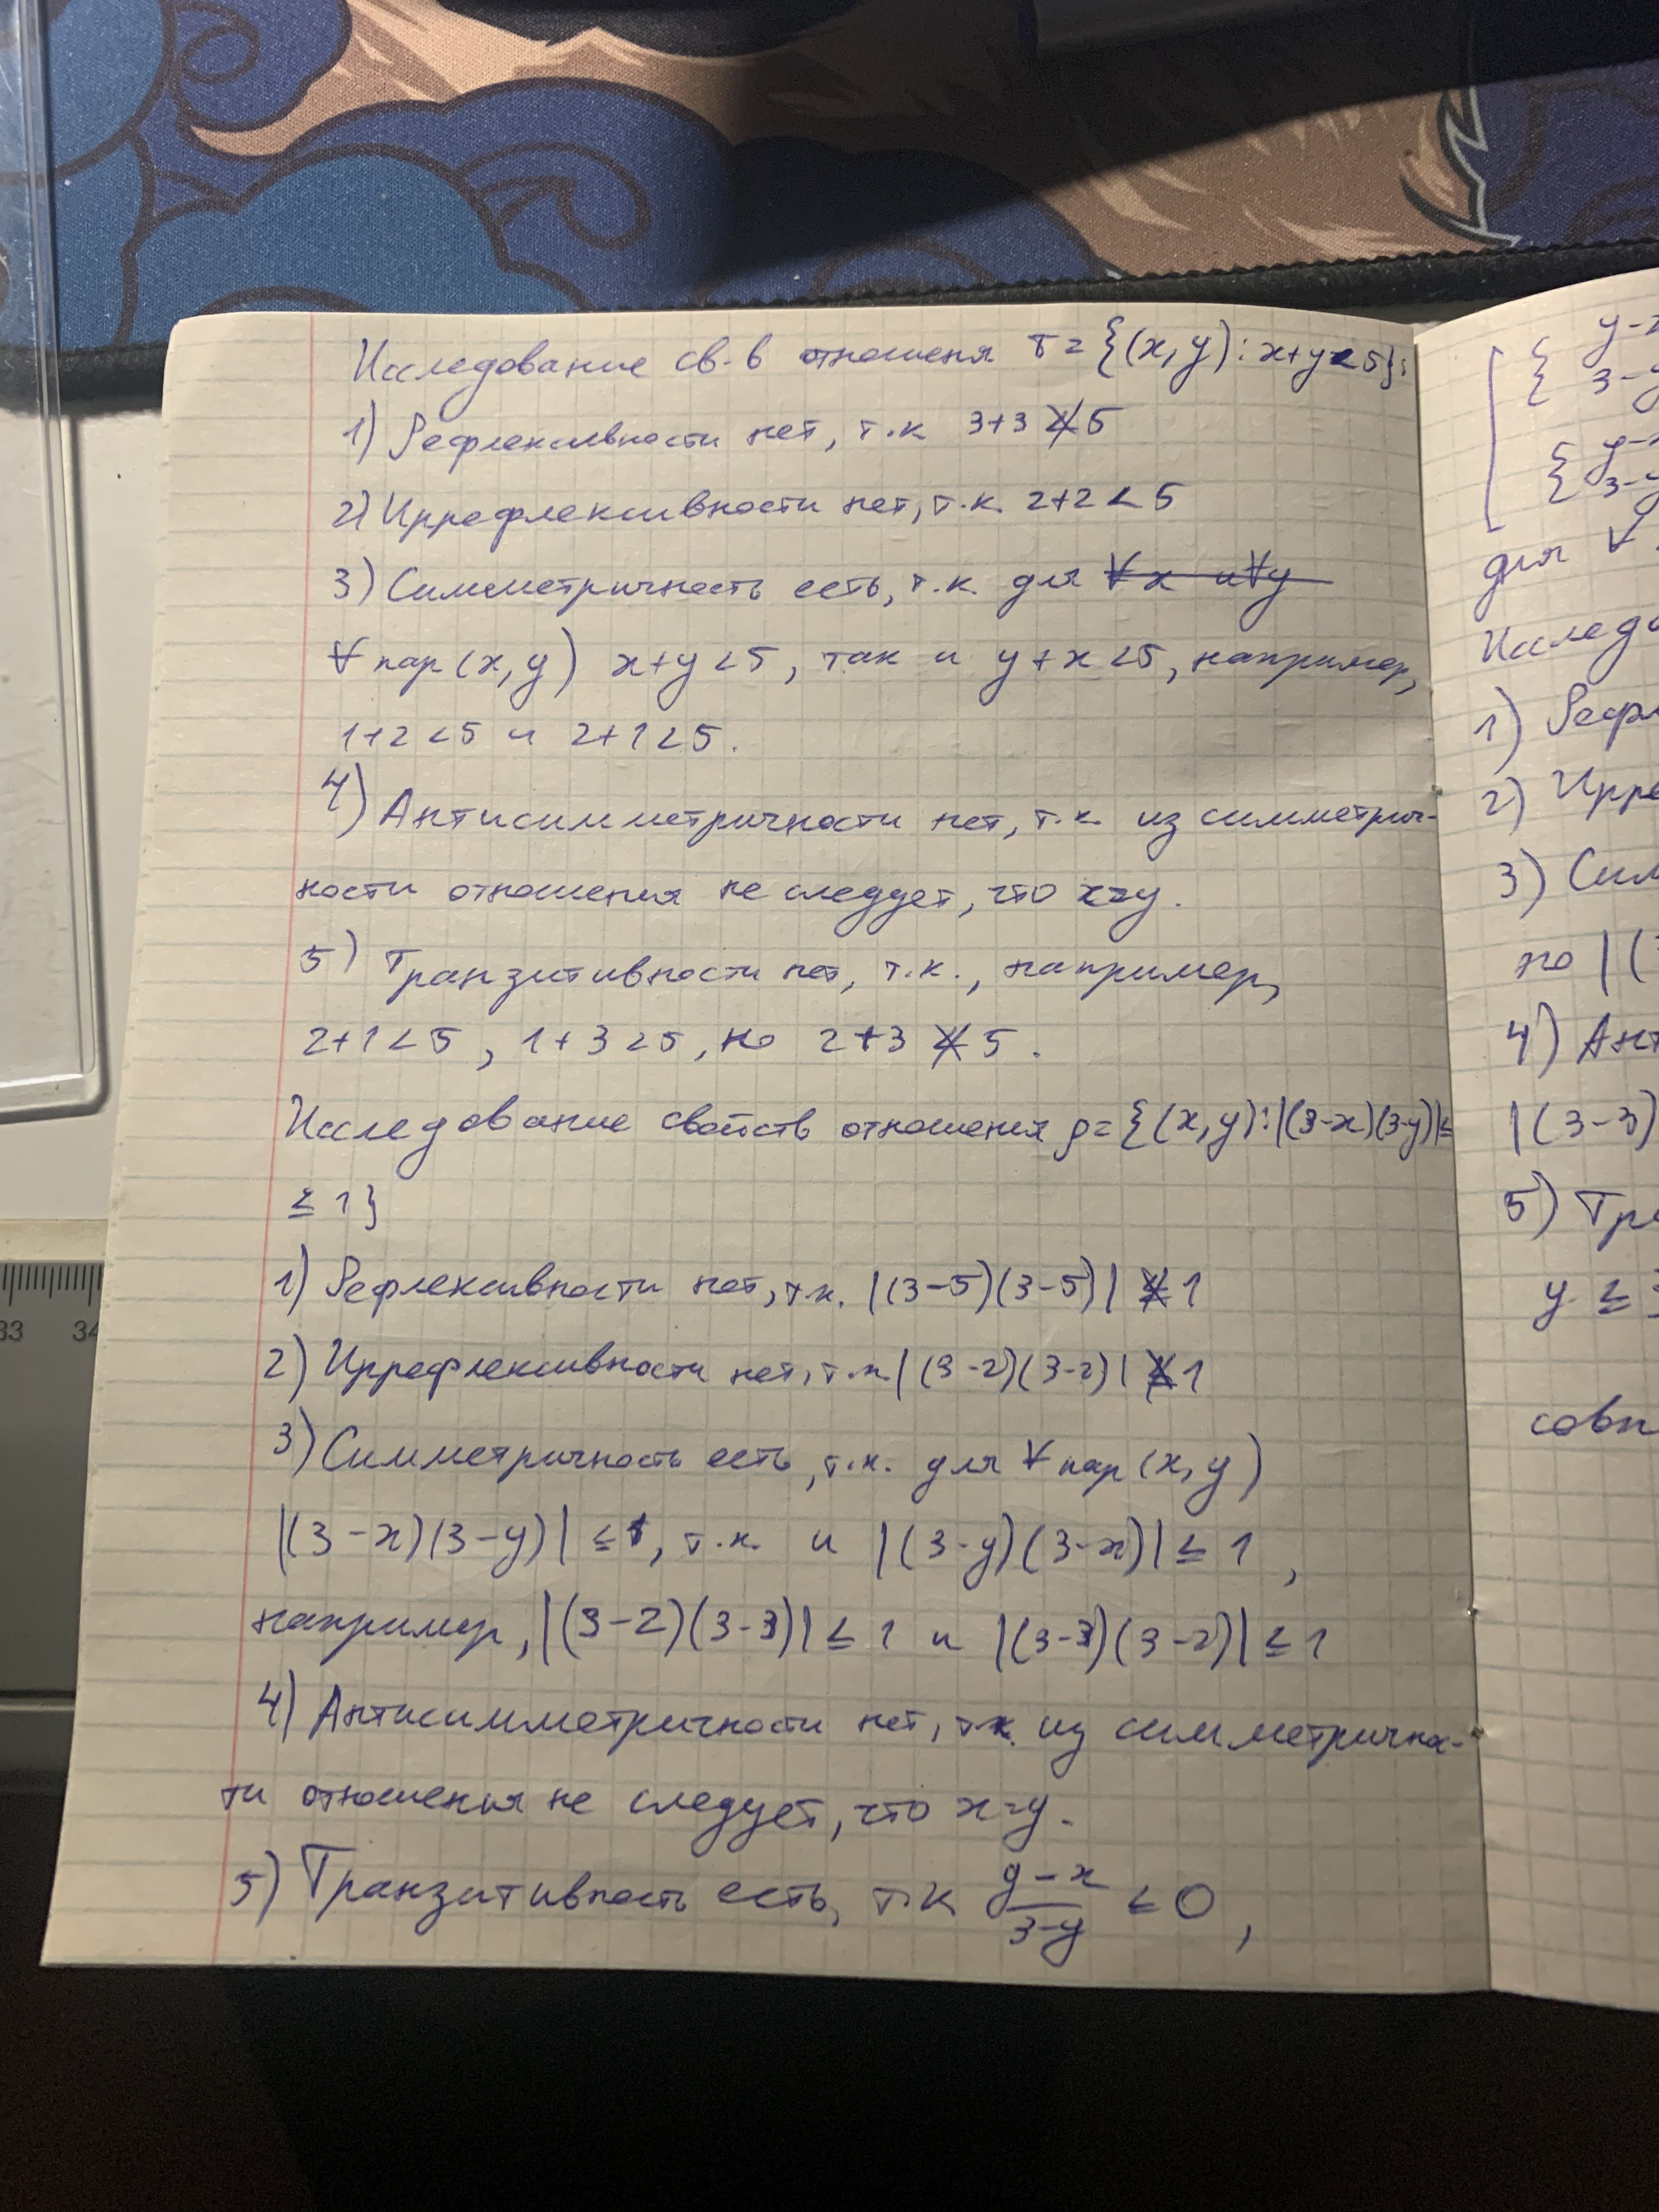 Исследование св-в отношеня τ = {(x, y) : x+y<5}:
1) Рефлексивности нет, т.к 3+3 ≮ 5
2) Иррефлексивности нет, т.к. 2+2 < 5
3) Симметричность есть, т.к. для ∀x и ∀y
∀ пар (x, y) x+y<5, так и y+x<5, например,
1+2<5 и 2+1<5.
4) Антисимметричности нет, т.к. из симметрич-
ности отношения не следует, что x=y.
5) Транзитивности нет, т.к., например,
2+1<5, 1+3<5, но 2+3 ≮ 5.
Исследование свойств отношения ρ={(x, y):|(3-x)(3-y)|≤
≤ 1}
1) Рефлексивности нет, т.к. |(3-5)(3-5)| ≰ 1
2) Иррефлексивности нет, т.к |(3-2)(3-2)| ≰ 1
3) Симметричность есть, т.к. для ∀ пар (x, y)
|(3-x)(3-y)| ≤ 1, т.к. и |(3-y)(3-x)| ≤ 1,
например, |(3-2)(3-3)| ≤ 1 и |(3-3)(3-2)| ≤ 1
4) Антисимметричности нет, т.к. из симметричнос-
ти отношения не следует, что x=y.
5) Транзитивность есть, т.к (y-x)/(3-y) < 0,
{ 3-y
для ∀
Исследо
1) Рефл
2) Ирре
3) Сим
но |(
4) Ант
|(3-3)
5) Тра
y ≤
совп